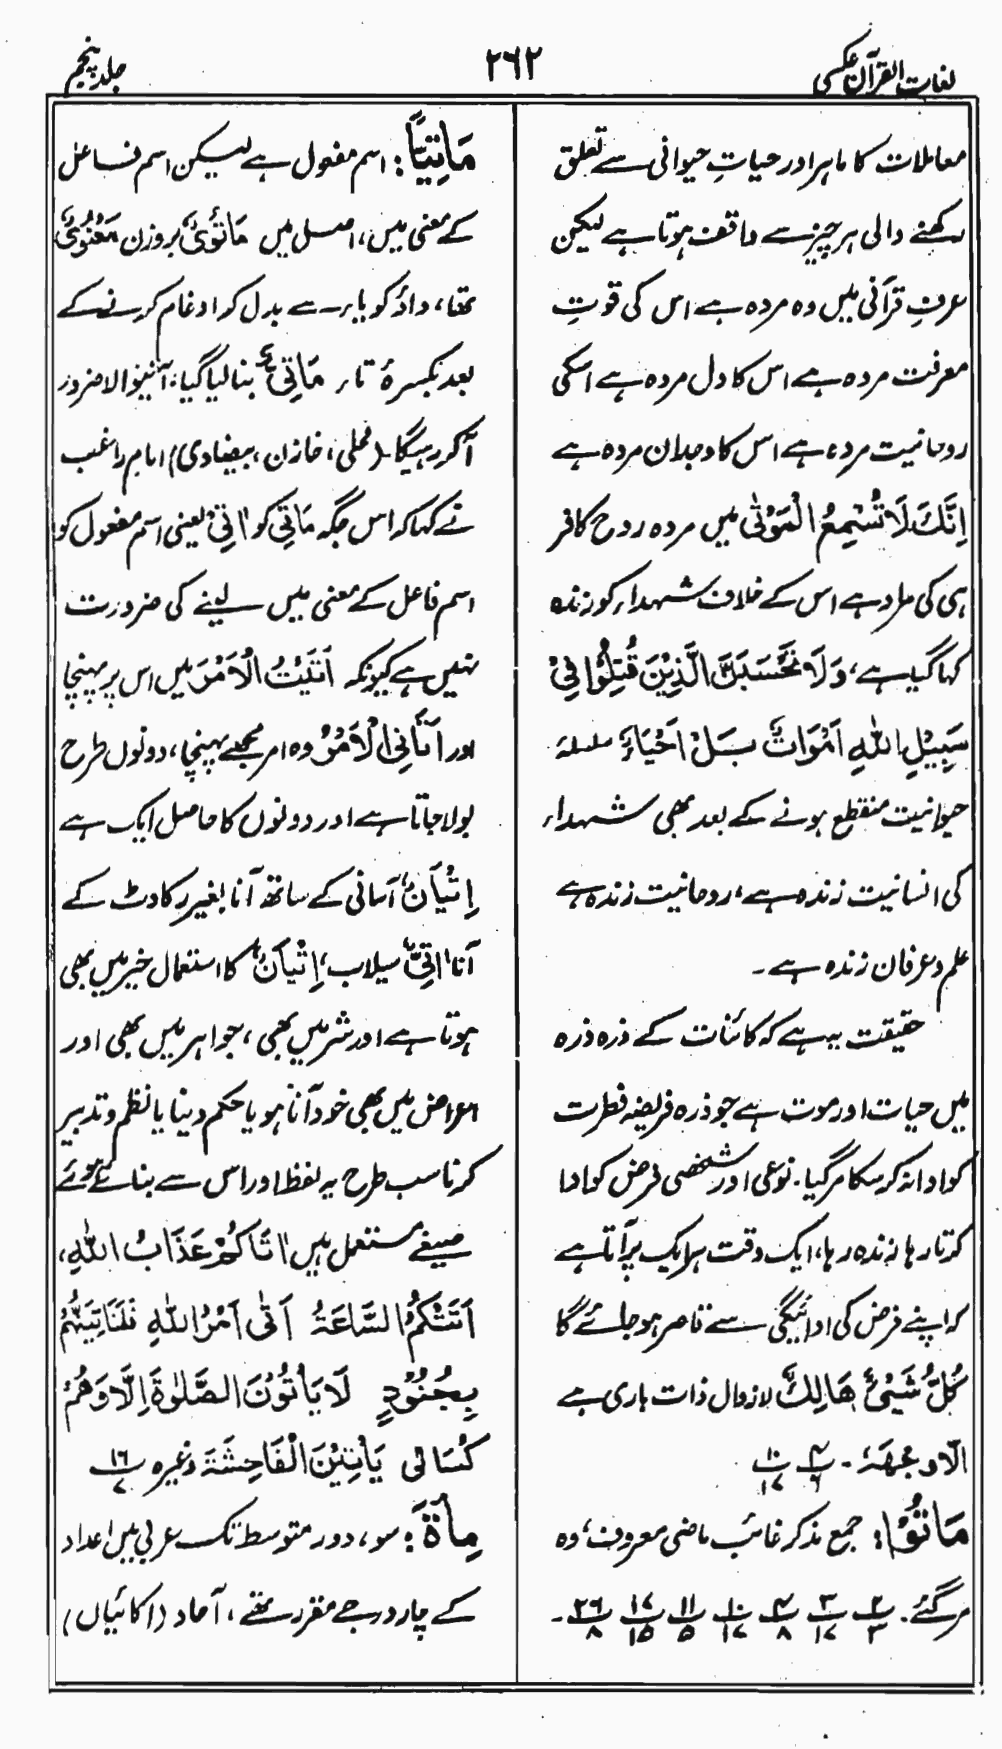 لغات القرآن عکسی
۲۶۲
جلد پنجم
معاملات کا ماہر اور حیاتِ حیوانی سے تعلق
رکھنے والی ہر چیز سے واقف ہوتا ہے لیکن
عرفِ قرآنی میں وہ مردہ ہے اس کی قوتِ
معرفت مردہ ہے اس کا دل مردہ ہے اسکی
روحانیت مردہ ہے اس کا وجدان مردہ ہے
اِنَّكَ لَا تُسْمِعُ الْمَوْتٰى میں مردہ روح کافر
ہی کی مراد ہے اس کے خلاف شہداء کو زندہ
کہا گیا ہے، وَلَا تَحْسَبَنَّ الَّذِيْنَ قُتِلُوْا فِيْ
سَبِيْلِ اللّٰهِ اَمْوَاتًا بَلْ اَحْيَاءٌ سلسلۂ
حیوانیت منقطع ہونے کے بعد بھی شہداء
کی انسانیت زندہ ہے، روحانیت زندہ ہے
علم و عرفان زندہ ہے۔
حقیقت یہ ہے کہ کائنات کے ذرہ ذرہ
میں حیات اور موت ہے جو ذرہ فریضہ فطرت
کو ادا نہ کر سکا مر گیا۔ نوعی اور شخصی فرض کو ادا
کرتا رہا زندہ رہا، ایک وقت ہر ایک پر آتا ہے
کہ اپنے فرض کی ادائیگی سے قاصر ہو جائے گا
كُلُّ شَيْئٍ هَالِكٌ لازوال ذات باری ہے
الّا وجهَهٗ۔ ۴/۶ ۱۰/۱۷
مَاتُوْا: جمع مذکر غائب ماضی معروف، وہ
مر گئے۔ ۲/۳ ۳/۱۷ ۴/۸ ۱۰/۱۷ ۱۱/۵ ۱۷/۱۵ ۲۶/۸ ۔
مَاتِيًّا: اسم مفعول ہے لیکن اسم فاعل
کے معنی میں، اصل میں مَاتُوْىٌ بروزن مَعْنُوْىٌ
تھا، واؤ کو یاء سے بدل کر ادغام کرنے کے
بعد بکسرۂ تاء مَاتِيٌّ بنا لیا گیا، آنیوالا ضرور
آ کر رہیگا۔ (محلی، خازن، بیضاوی) امام راغب
نے کہا کہ اس جگہ مَاتِيٌّ کو اٰتِيٌ یعنی اسم مفعول کو
اسم فاعل کے معنی میں لینے کی ضرورت
نہیں ہے کیونکہ اَتَيْتُ الْاَمْرَ میں اس پر پہنچا
اور اَتَانِى الْاَمْرُ وہ امر مجھے پہنچا، دونوں طرح
بولا جاتا ہے اور دونوں کا حاصل ایک ہے
اِتْيَانٌ آسانی کے ساتھ آنا بغیر رکاوٹ کے
آنا اَتِيٌّ سیلاب، اِتْيَانٌ کا استعمال خیر میں بھی
ہوتا ہے اور شر میں بھی، جواہر میں بھی اور
اعراض میں بھی خود آنا ہو یا حکم دینا یا نظم و تدبیر
کرنا سب طرح یہ لفظ اور اس سے بنائے ہوئے
صیغے مستعمل ہیں اَتَاكُمْ عَذَابُ اللّٰهِ،
اَتَتْكُمُ السَّاعَةُ اَتٰى اَمْرُ اللّٰهِ فَلَنَاْتِيَنَّهُمْ
بِجُنُوْدٍ لَا يَاْتُوْنَ الصَّلٰوةَ اِلَّا وَهُمْ
كُسَالٰى يَاْتِيْنَ الْفَاحِشَةَ وغیرہ ۱۶/۷
مِأَةٌ: سو، دور متوسط تک عربی میں اعداد
کے چار درجے مقرر تھے، آحاد (اکائیاں)